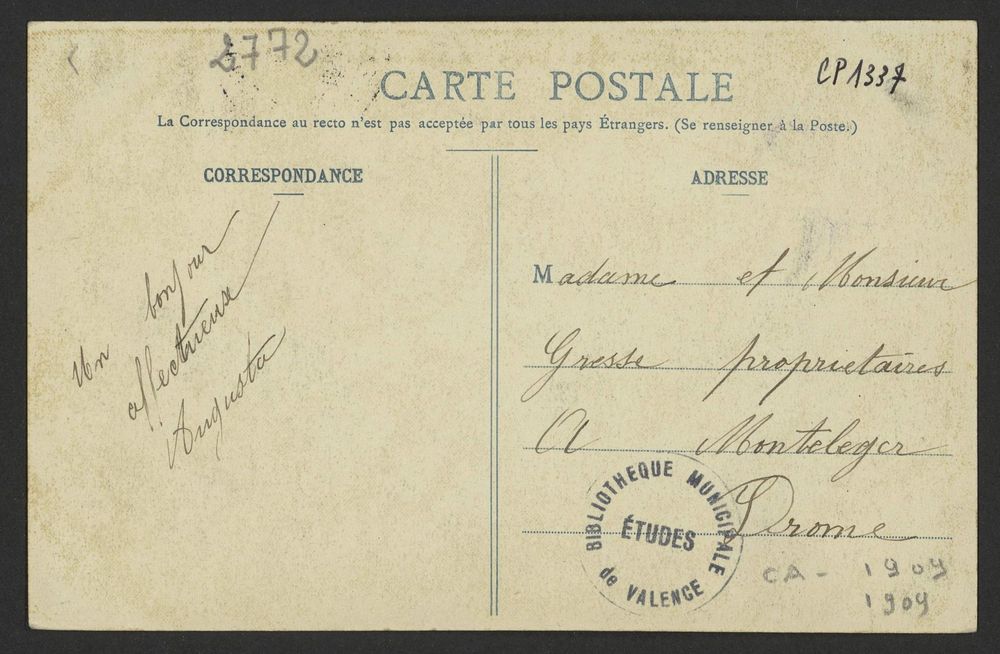 2772
CP1337
CARTE POSTALE
La Correspondance au recto n'est pas acceptée par tous les pays Étrangers. (Se renseigner à la Poste.)
CORRESPONDANCE
Un bonjour
affectueuse
Augusta
ADRESSE
Madame et Monsieur
Gresse proprietaires
A Monteleger
Drome
BIBLIOTHEQUE MUNICIPALE
ÉTUDES
de VALENCE
CA - 1909
1909